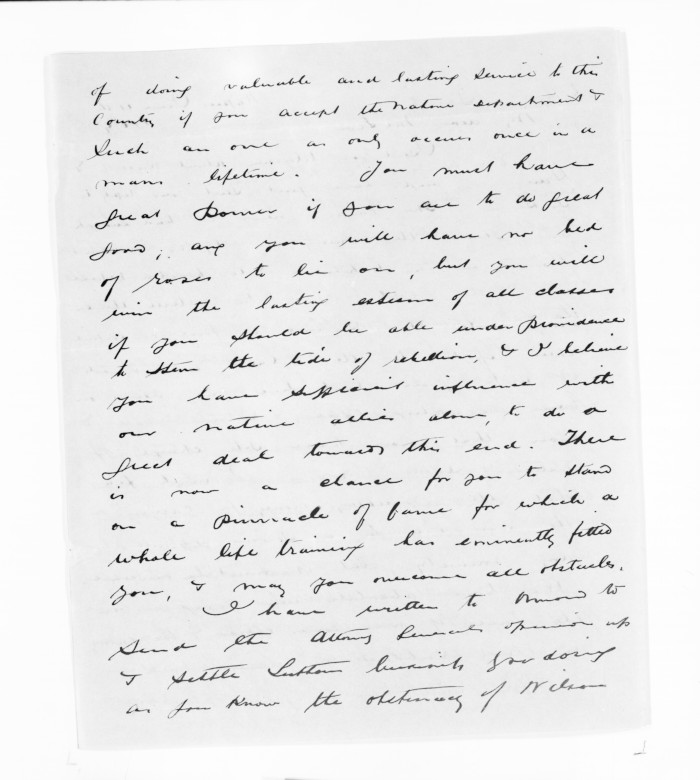 of doing valuable and lasting service to this
Country if you accept the Native department &
Such an one as only occurs once in a
mans lifetime. You must have
great Power if you are to do great
Good; any you will have no bed
of roses to lie on, but you will
win the lasting esteem of all classes
if you should be able under providence
to stem the tide of rebellion, & I believe
you have sufficient influence with
our native allies alone, to do a
great deal towards this end. There
is now a chance for you to stand
on a pinnacle of fame for which a
whole life training has eminently fitted
you, & may you overcome all obstacles.
I have written to Ormond to
Send the Attorney Generals opinion up
& settle your doing
as you know the obstinacy of Wilson